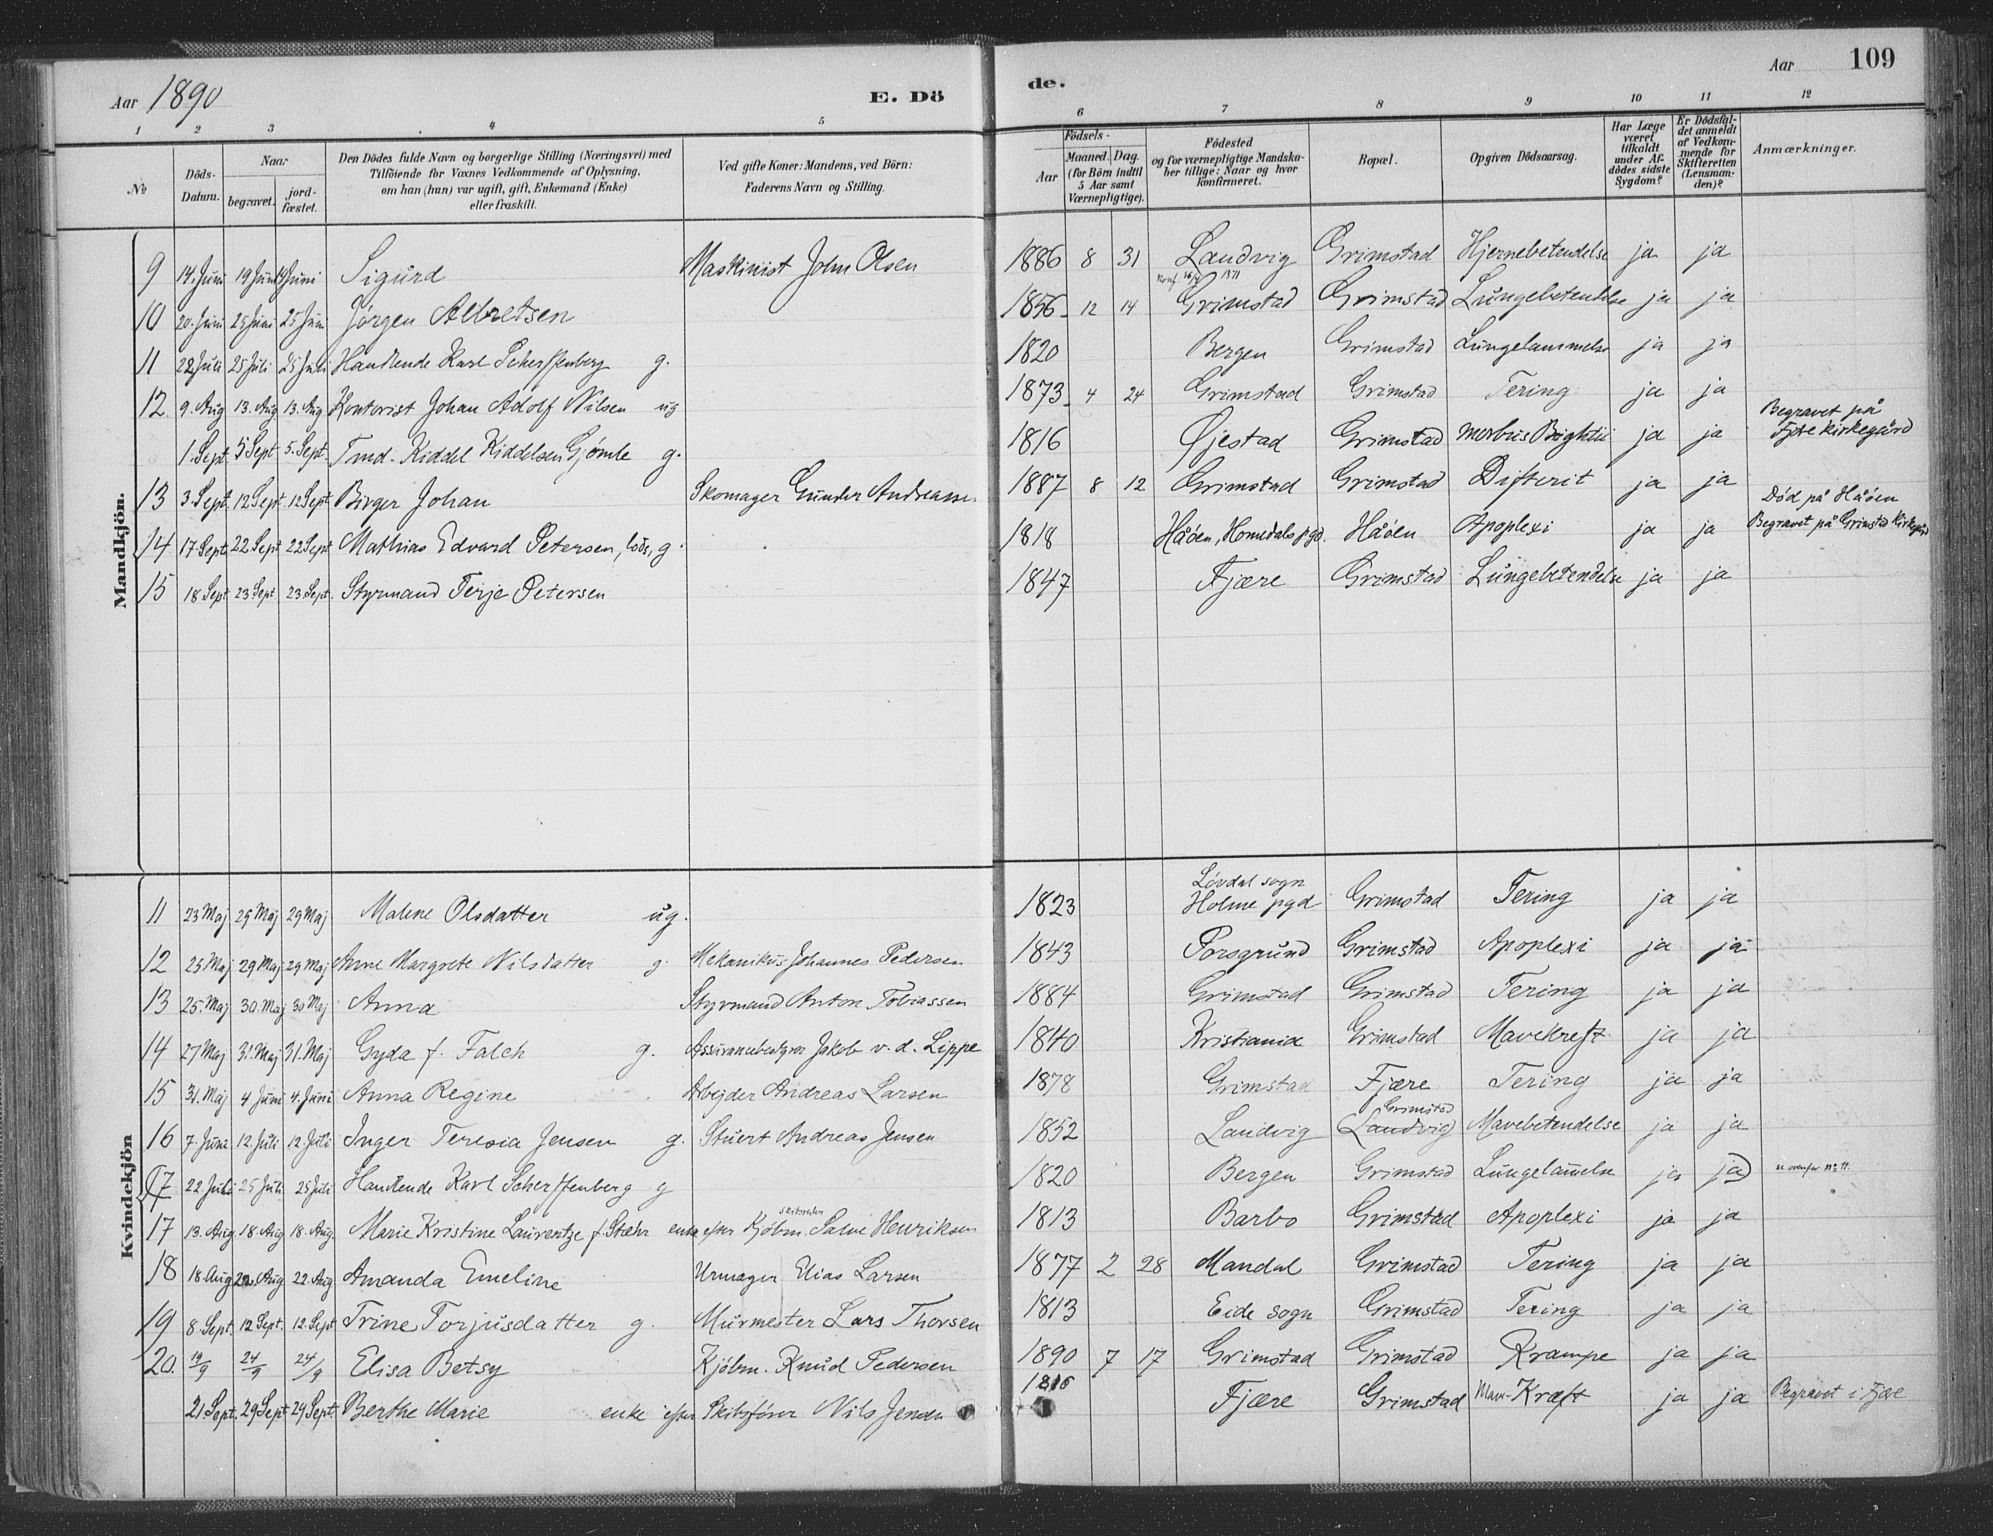 Aar 1890
E. Dö
de.
Aar 109
1 2 3 4 5 6 7 8 9 10 11 12
№
Döds-Datum.
Naar
begravet.
jord-fæstet.
Den Dödes fulde Navn og borgerlige Stilling (Næringsvei) med
Tilföiende for Voxnes Vedkommende af Oplysning,
om han (hun) var ugift, gift, Enkemand (Enke)
eller fraskilt.
Ved gifte Koner: Mandens, ved Börn:
Faderens Navn og Stilling.
Födsels-
Aar
Maaned. Dag.
(for Börn indtil
5 Aar samt
Værnepligtige).
Födested
og for værnepligtige Mandska-
ber tillige: Naar og hvor
konfirmeret.
Bopæl.
Opgiven Dödsaarsag.
Har Læge
været
tilkaldt
under Af-
dödes sidste
Sygdom?
Er Dödsfal-
det anmeldt
af Vedkom-
mende for
Skifteretten
(Lensman-
den)?
Anmærkninger.
Mandkjön.
9 14. Juni 19 Juni 19 Juni Sigurd Maskinist John Olsen 1886 8 31 Landvig Grimstad Hjernebetendelse ja ja
10 20. Juni 25 Juni 25 Juni Jörgen Albretsen 1856 12 14 Konf. 1871 Grimstad Grimstad Lungebetendelse ja ja
11 22 Juli 25 Juli 25 Juli Handlende Karl Scherffenberg g. 1820 Bergen Grimstad Lungelammelse ja ja
12 9. Aug 13. Aug 13. Aug Kontorist Johan Adolf Nilsen ug 1873 4 24 Grimstad Grimstad Tering ja ja
1. Sept 5 Sept 5. Sept. Tmd. Kiddel Kiddelsen Gjömle g. 1816 Öjestad Grimstad Morbus Brightii ja ja Begravet på Fjære Kirkegård
13 3. Sept. 12 Sept. 12 Sept. Birger Johan Skomager Gunder Andreassen 1887 8 12 Grimstad Grimstad Difterit ja ja
14 17 Sept. 22 Sept 22 Sept Mathias Edvard Petersen, lods, g. 1818 Håöen, Homedals pgd. Håöen Apoplexi ja ja Död på Håöen Begravet på Grimstad Kirkegård
15 18 Sept 23 Sept 23 Sept. Styrmand Terje Petersen 1847 Fjære Grimstad Lungebetendelse ja ja
Kvindekjön
11 23 Maj 29 Maj 29 Maj Malene Olsdatter ug. 1823 Lövdal sogn Holme pgd Grimstad Tering ja ja
12 25 Maj 29 Maj 29 Maj Anne Margrete Nilsdatter g. Mekanikus Johannes Pedersen 1843 Porsgrund Grimstad Apoplexi ja ja
13 25. Maj 30. Maj 30 Maj Anna Styrmand Anton Tobiassen 1884 Grimstad Grimstad Tering ja ja
14 27 Maj 31. Maj 31. Maj Gyda f. Falch g. Assurancebestyrer Jakob v. d. Lippe 1840 Kristiania Grimstad Mavekreft ja ja
15 31. Maj 4 Juni 4. Juni Anna Regine Arbejder Andreas Larsen 1878 Grimstad Fjære Tering ja ja
16 7. Juni 12 Juli 12. Juli Inger Teresia Jensen g. Stuert Andreas Jensen 1852 Landvig Grimstad (Landvig) Mavebetendelse ja ja
17 22 Juli 25 Juli 25 Juli Handlende Karl Scherffenberg g 1820 Bergen Grimstad Lungelammelse ja ja) se ovenfor № 11.
17 13. Aug 18. Aug 18. Aug Marie Kristine Laurentze f. Stæhr enke efter Kjöbm. Salve Henriksen 1813 Barbo Grimstad Apoplexi ja ja
18 18. Aug 22. Aug 22. Aug Amanda Emeline Urmager Elias Larsen 1877 2 28 Mandal Grimstad Tering ja ja
19 8. Sept. 12 Sept. 12. Sept Trine Torjusdatter g. Murmester Lars Thorsen 1813 Eide sogn Grimstad Tering ja ja
20. 19/9 24/9 24/9 Elisa Betsy Kjöbm. Knud Pedersen 1890 7 17 Grimstad Grimstad Krampe ja ja
21 Sept. 29 Sept 29 Sept. Berthe Marie enke efter Skibsförer Nils Jensen 1816 Fjære Grimstad Mave-Kræft ja ja Begravet i Fjære